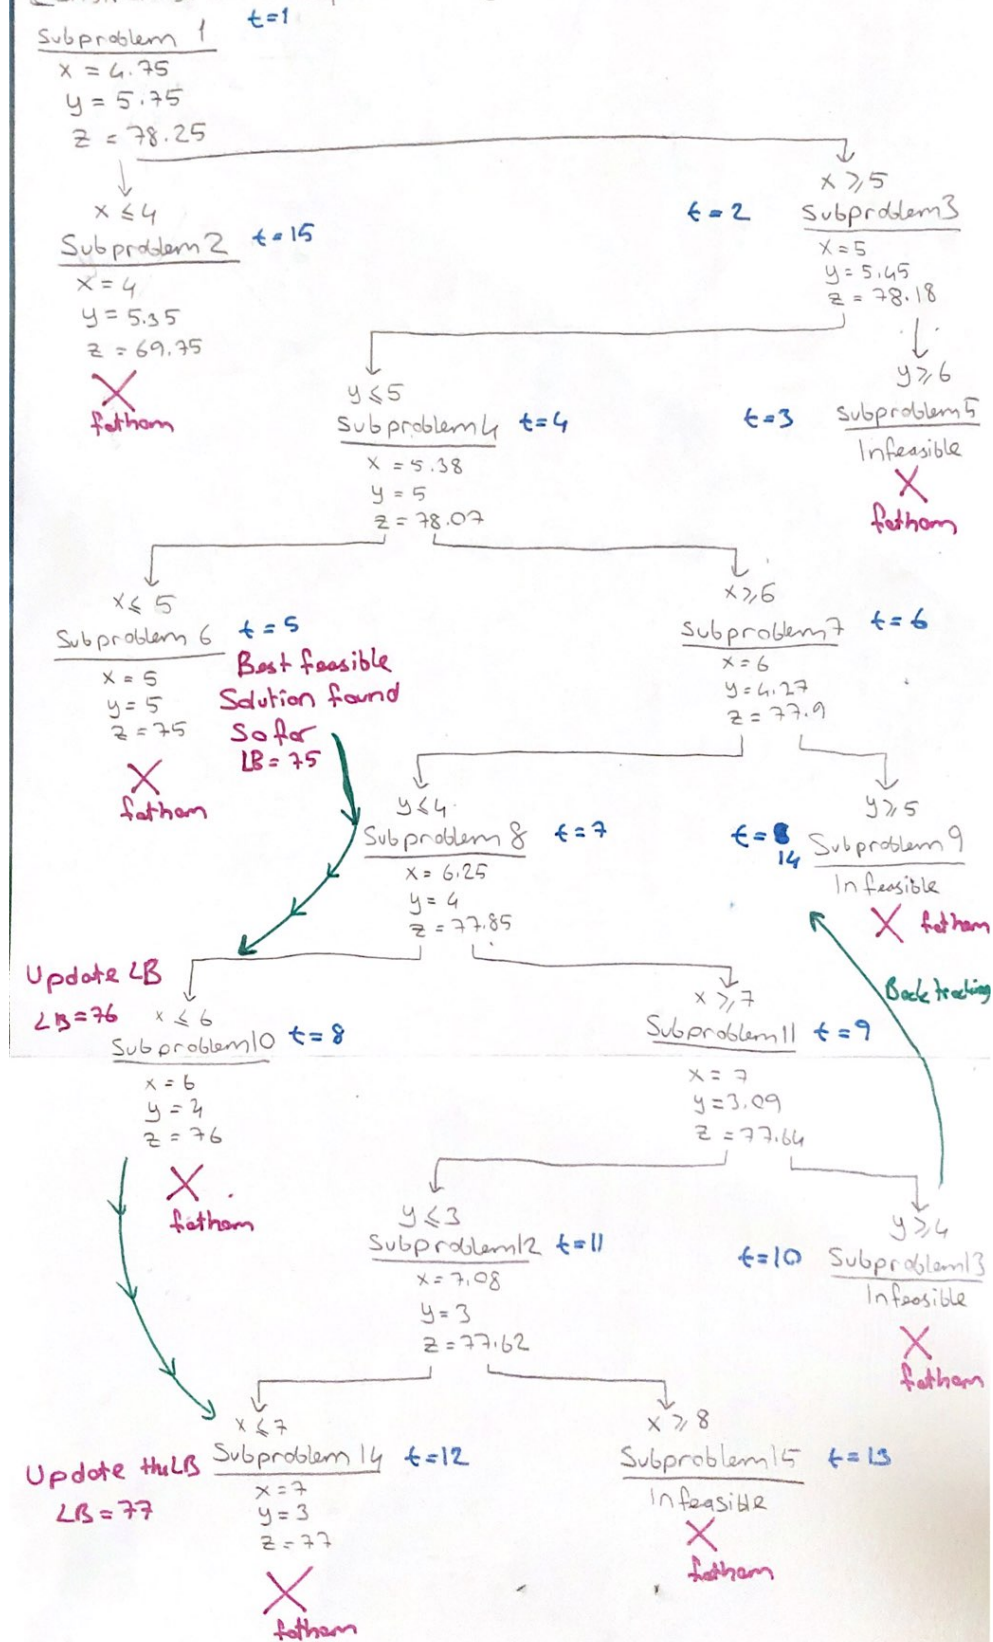 t=1
Subproblem 1
x = 4.75
y = 5.75
z = 78.25
x ≤ 4
Subproblem 2
t=15
x = 4
y = 5.35
z = 69.75
fathom
x ≥ 5
t=2
Subproblem 3
x = 5
y = 5.45
z = 78.18
y ≤ 5
Subproblem 4
t=4
x = 5.38
y = 5
z = 78.07
y ≥ 6
t=3
Subproblem 5
Infeasible
fathom
x ≤ 5
Subproblem 6
t=5
x = 5
y = 5
z = 75
fathom
Best feasible
Solution found
So far
LB = 75
x ≥ 6
Subproblem 7
t=6
x = 6
y = 4.27
z = 77.9
y ≤ 4
Subproblem 8
t=7
x = 6.25
y = 4
z = 77.85
y ≥ 5
t=
14
Subproblem 9
Infeasible
fathom
Back tracking
Update LB
LB=76
x ≤ 6
Subproblem 10
t=8
x = 6
y = 4
z = 76
fathom
x ≥ 7
Subproblem 11
t=9
x = 7
y = 3.09
z = 77.64
y ≤ 3
Subproblem 12
t=11
x = 7.08
y = 3
z = 77.62
y ≥ 4
t=10
Subproblem 13
Infeasible
fathom
x ≤ 7
Update the LB
LB = 77
Subproblem 14
t=12
x = 7
y = 3
z = 77
fathom
x ≥ 8
Subproblem 15
t=13
Infeasible
fathom